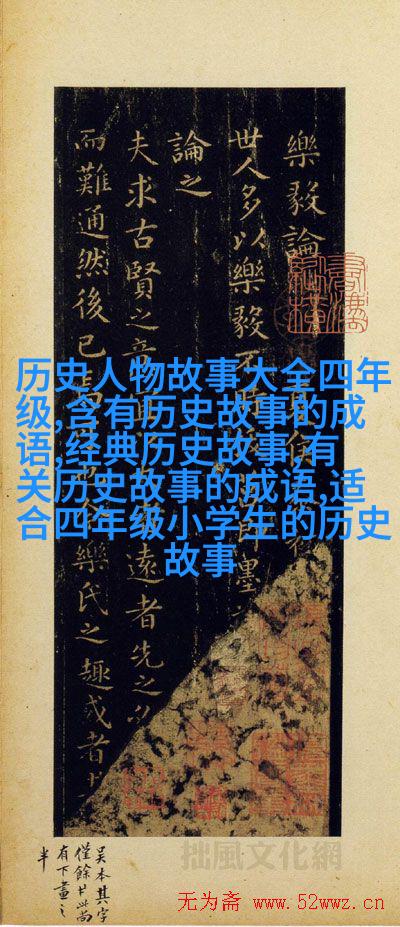 樂毅論
世人多以樂毅不 即墨
論之
夫求古賢之意 遠者先之必
而難通然後已焉 樂氏之趣或者
历史人物故事大全四年
级,含有历史故事的成
语,经典历史故事,有
关历史故事的成语,适
合四年级小学生的历史
故事
吴本其字
僅餘 此尚
有下畫之
半
拙風文化網
无为斋 www.52wwz.cn